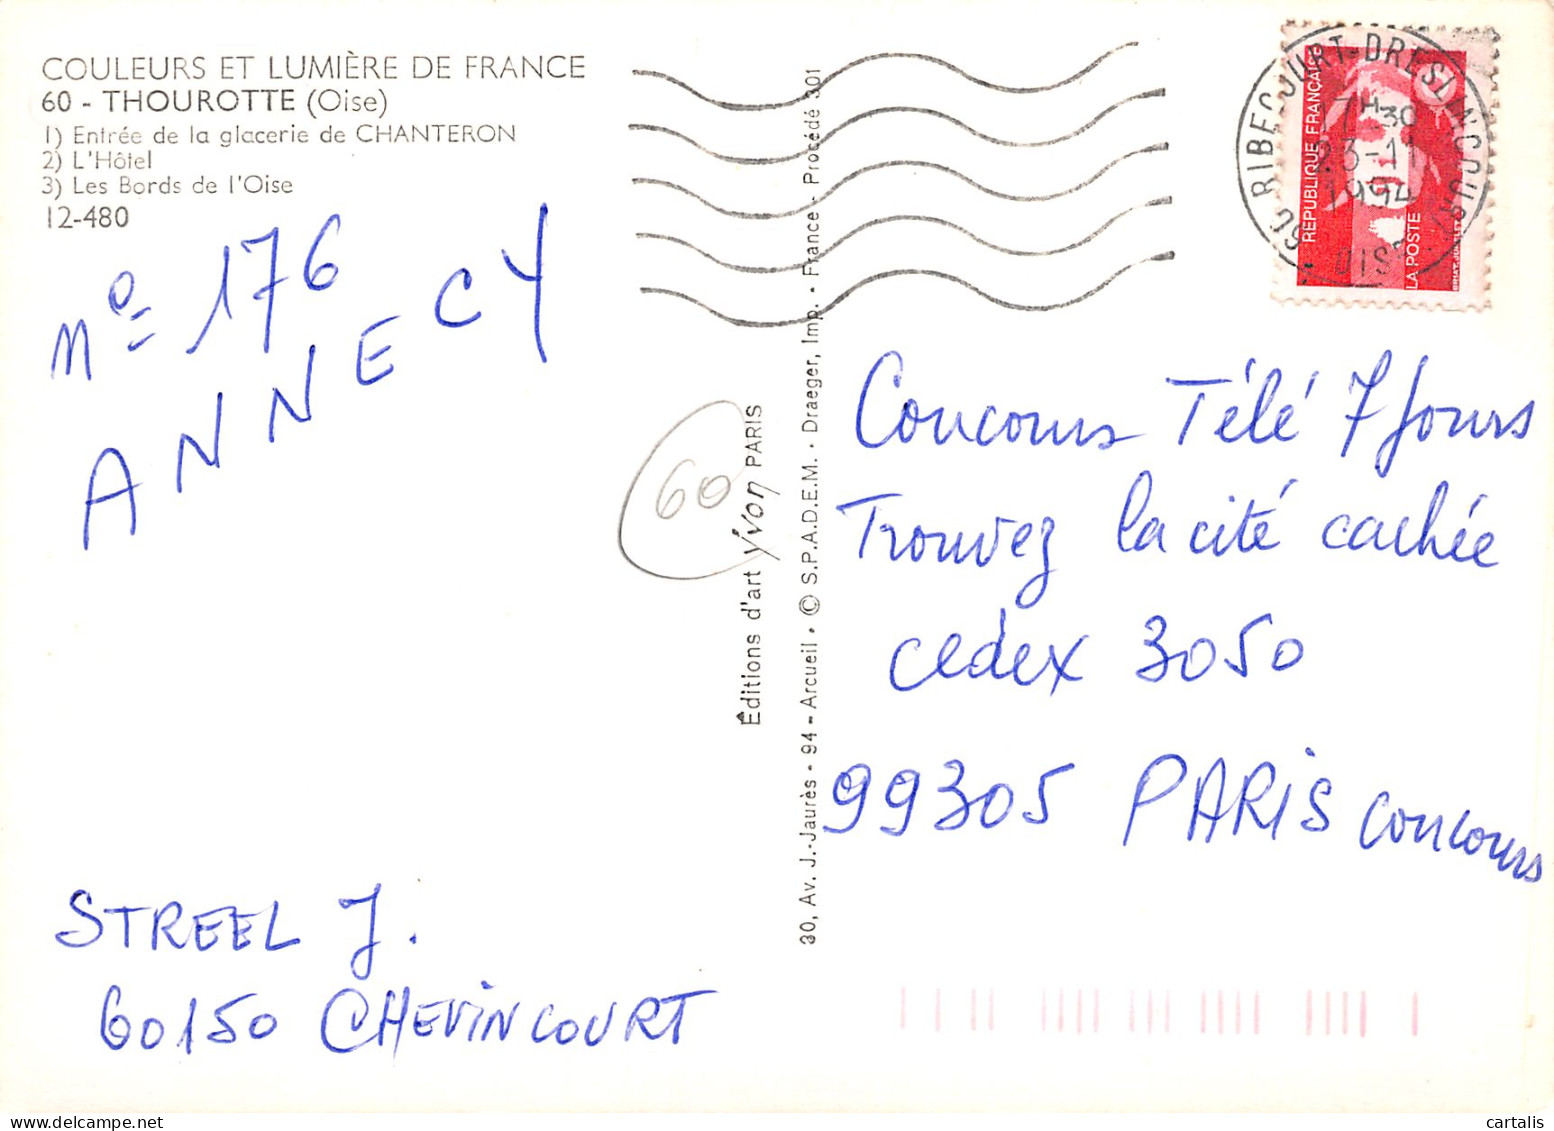 COULEURS ET LUMIÈRE DE FRANCE
60 - THOUROTTE (Oise)
1) Entrée de la glacerie de CHANTERON
2) L'Hôtel
3) Les Bords de l'Oise
12-480
n° 176
ANNECY
STREEL J.
60150 CHEVINCOURT
60
Éditions d'art yvon PARIS
30, Av. J.-Jaurès - 94 - Arcueil • © S.P.A.D.E.M. • Draeger, Imp. • France - Procédé 301
60 RIBECOURT-DRESLINCOURT OISE
7H30
23-11
1994
RÉPUBLIQUE FRANÇAISE
LA POSTE
Concours Télé 7 Jours
Trouvez la cité cachée
cedex 3050
99305 PARIS concours
cartalis